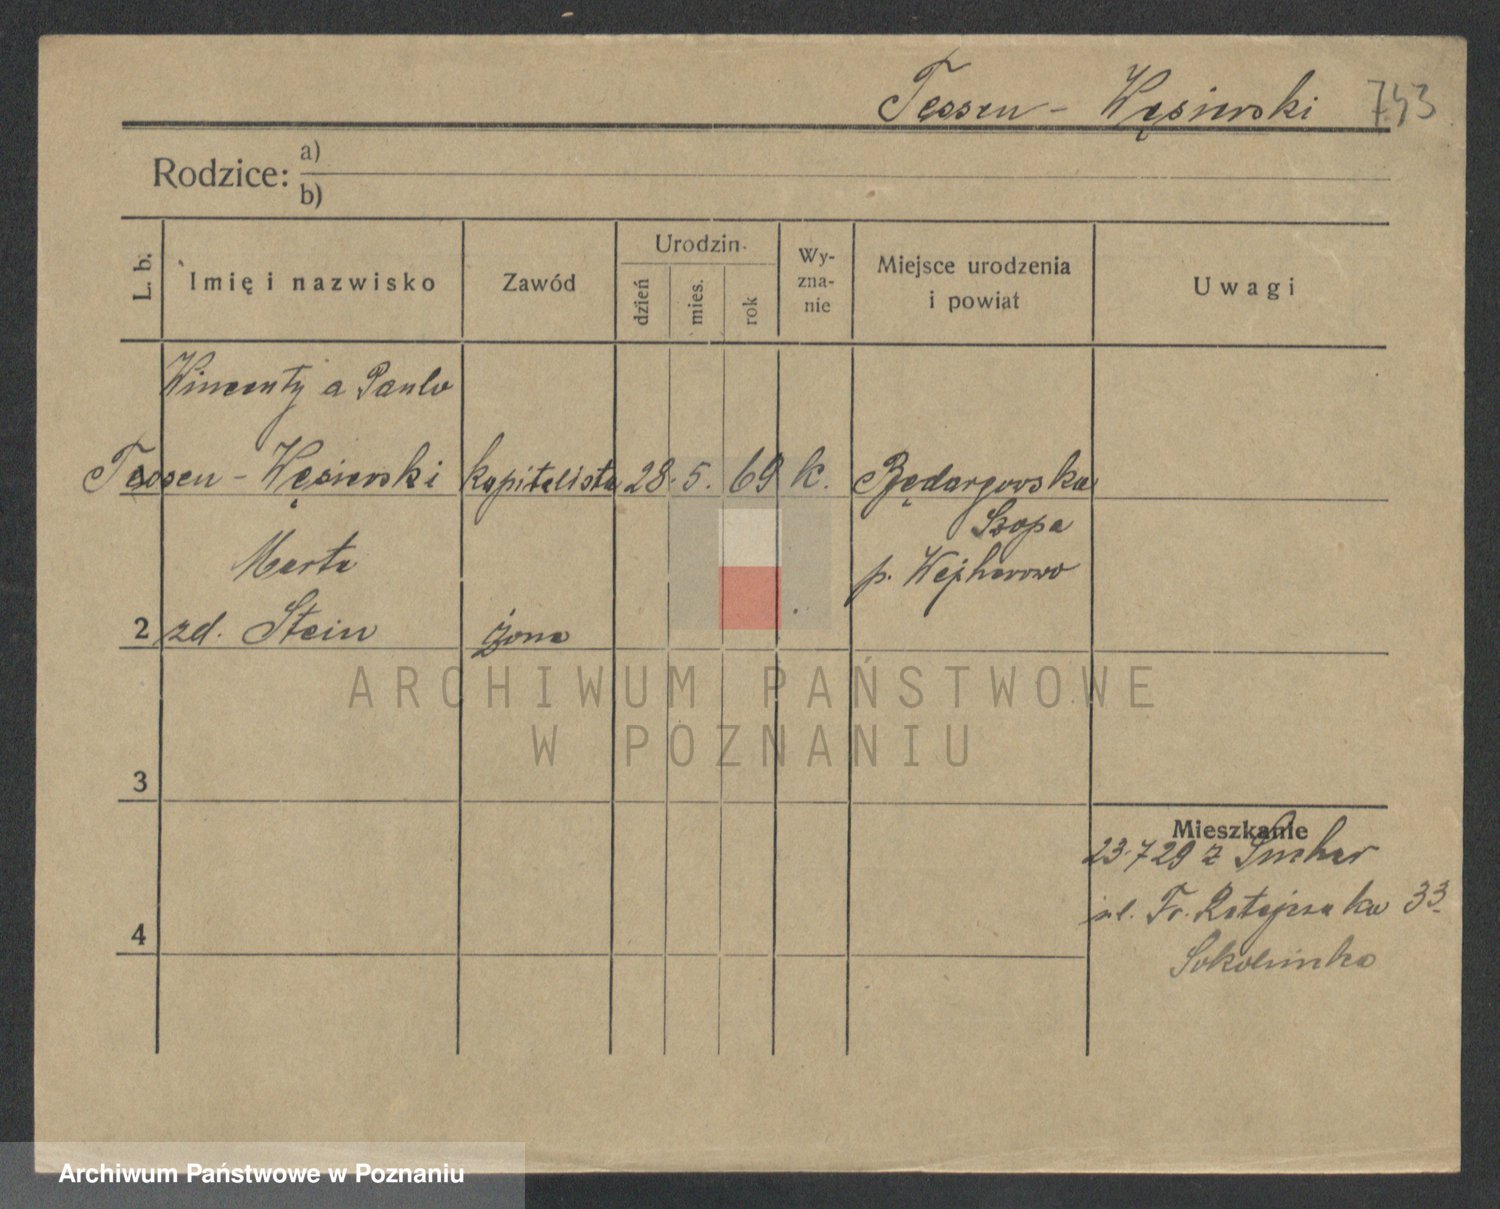 Tessen - Węsierski 743
Rodzice: a)
b)
L. b.
Imię i nazwisko
Zawód
Urodzin
dzień
mies.
rok
Wy-
zna-
nie
Miejsce urodzenia
i powiat
Uwagi
Wincenty a Paulo
Tessen - Węsierski kapitalista 28. 5. 69 k. Będargowska
Szopa
Marta p. Wejherowo
2 zd. Stein żona
ARCHIWUM PAŃSTWOWE
W POZNANIU
3
Mieszkanie
23.7 29 z
ul. Fr. Ratajczaka 33
4
Archiwum Państwowe w Poznaniu